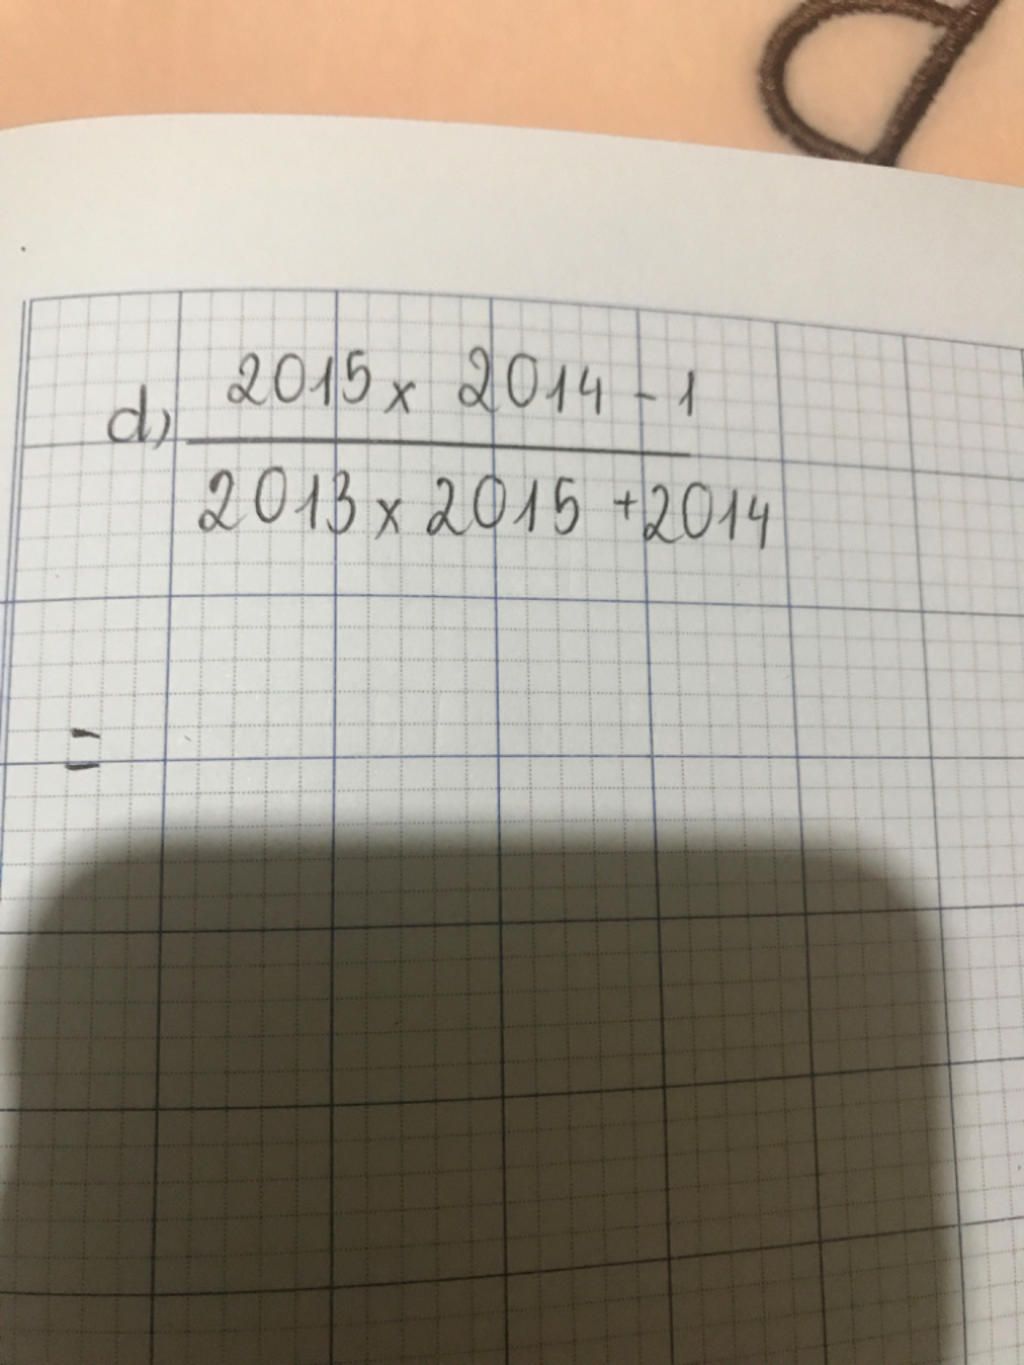 d) 2015 x 2014 - 1
2013 x 2015 + 2014
=